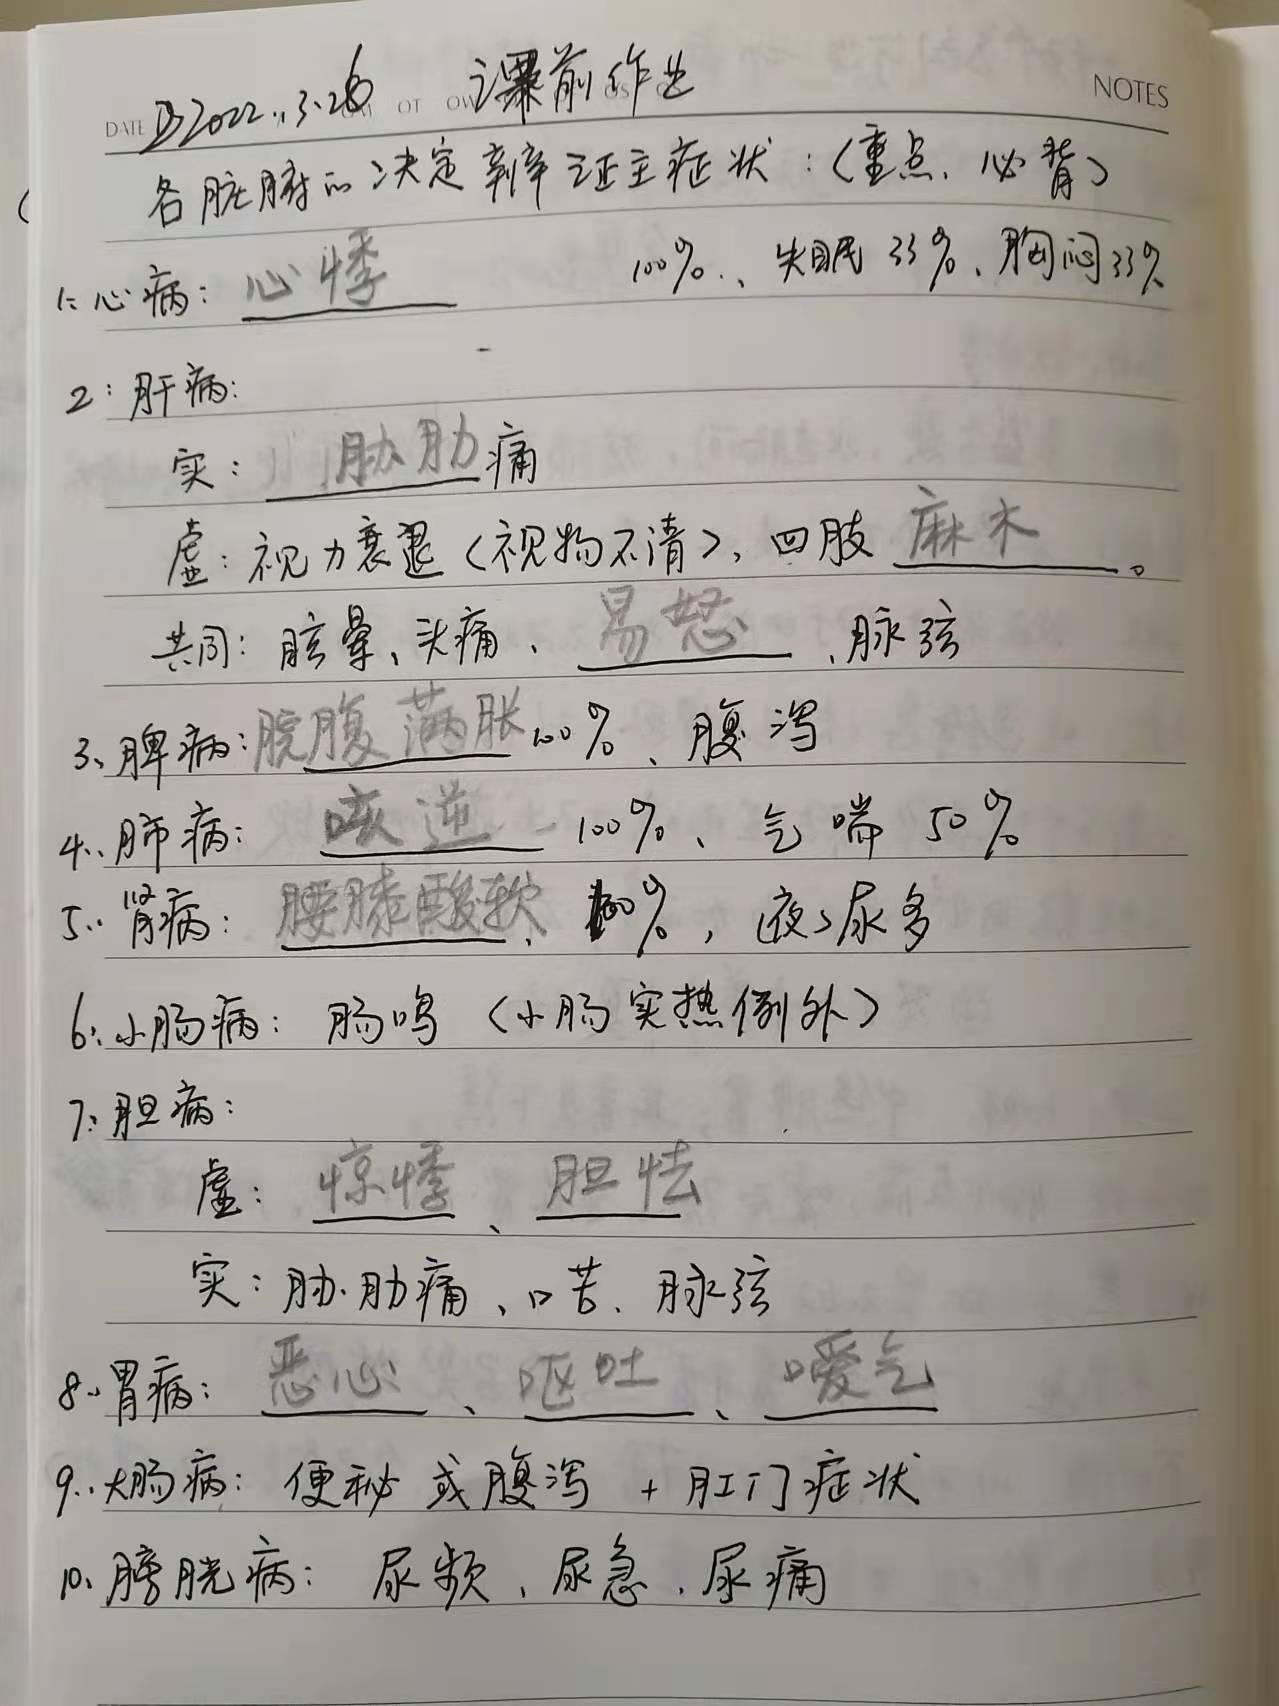 DATE 2022.3.26 课前作业 NOTES
各脏腑的决定辨证主症状：（重点、必背）
1：心病：心悸 100%、失眠33%、胸闷33%
2：肝病：
实：胁肋痛
虚：视力衰退（视物不清），四肢麻木。
共同：眩晕、头痛、易怒、脉弦
3、脾病：脘腹满胀100%、腹泻
4、肺病：咳逆 100%、气喘 50%
5、肾病：腰膝酸软、100%，夜尿多
6：小肠病：肠鸣（小肠实热例外）
7：胆病：
虚：惊悸、胆怯
实：胁肋痛、口苦、脉弦
8、胃病：恶心、呕吐、嗳气
9、大肠病：便秘或腹泻 + 肛门症状
10、膀胱病：尿频、尿急、尿痛